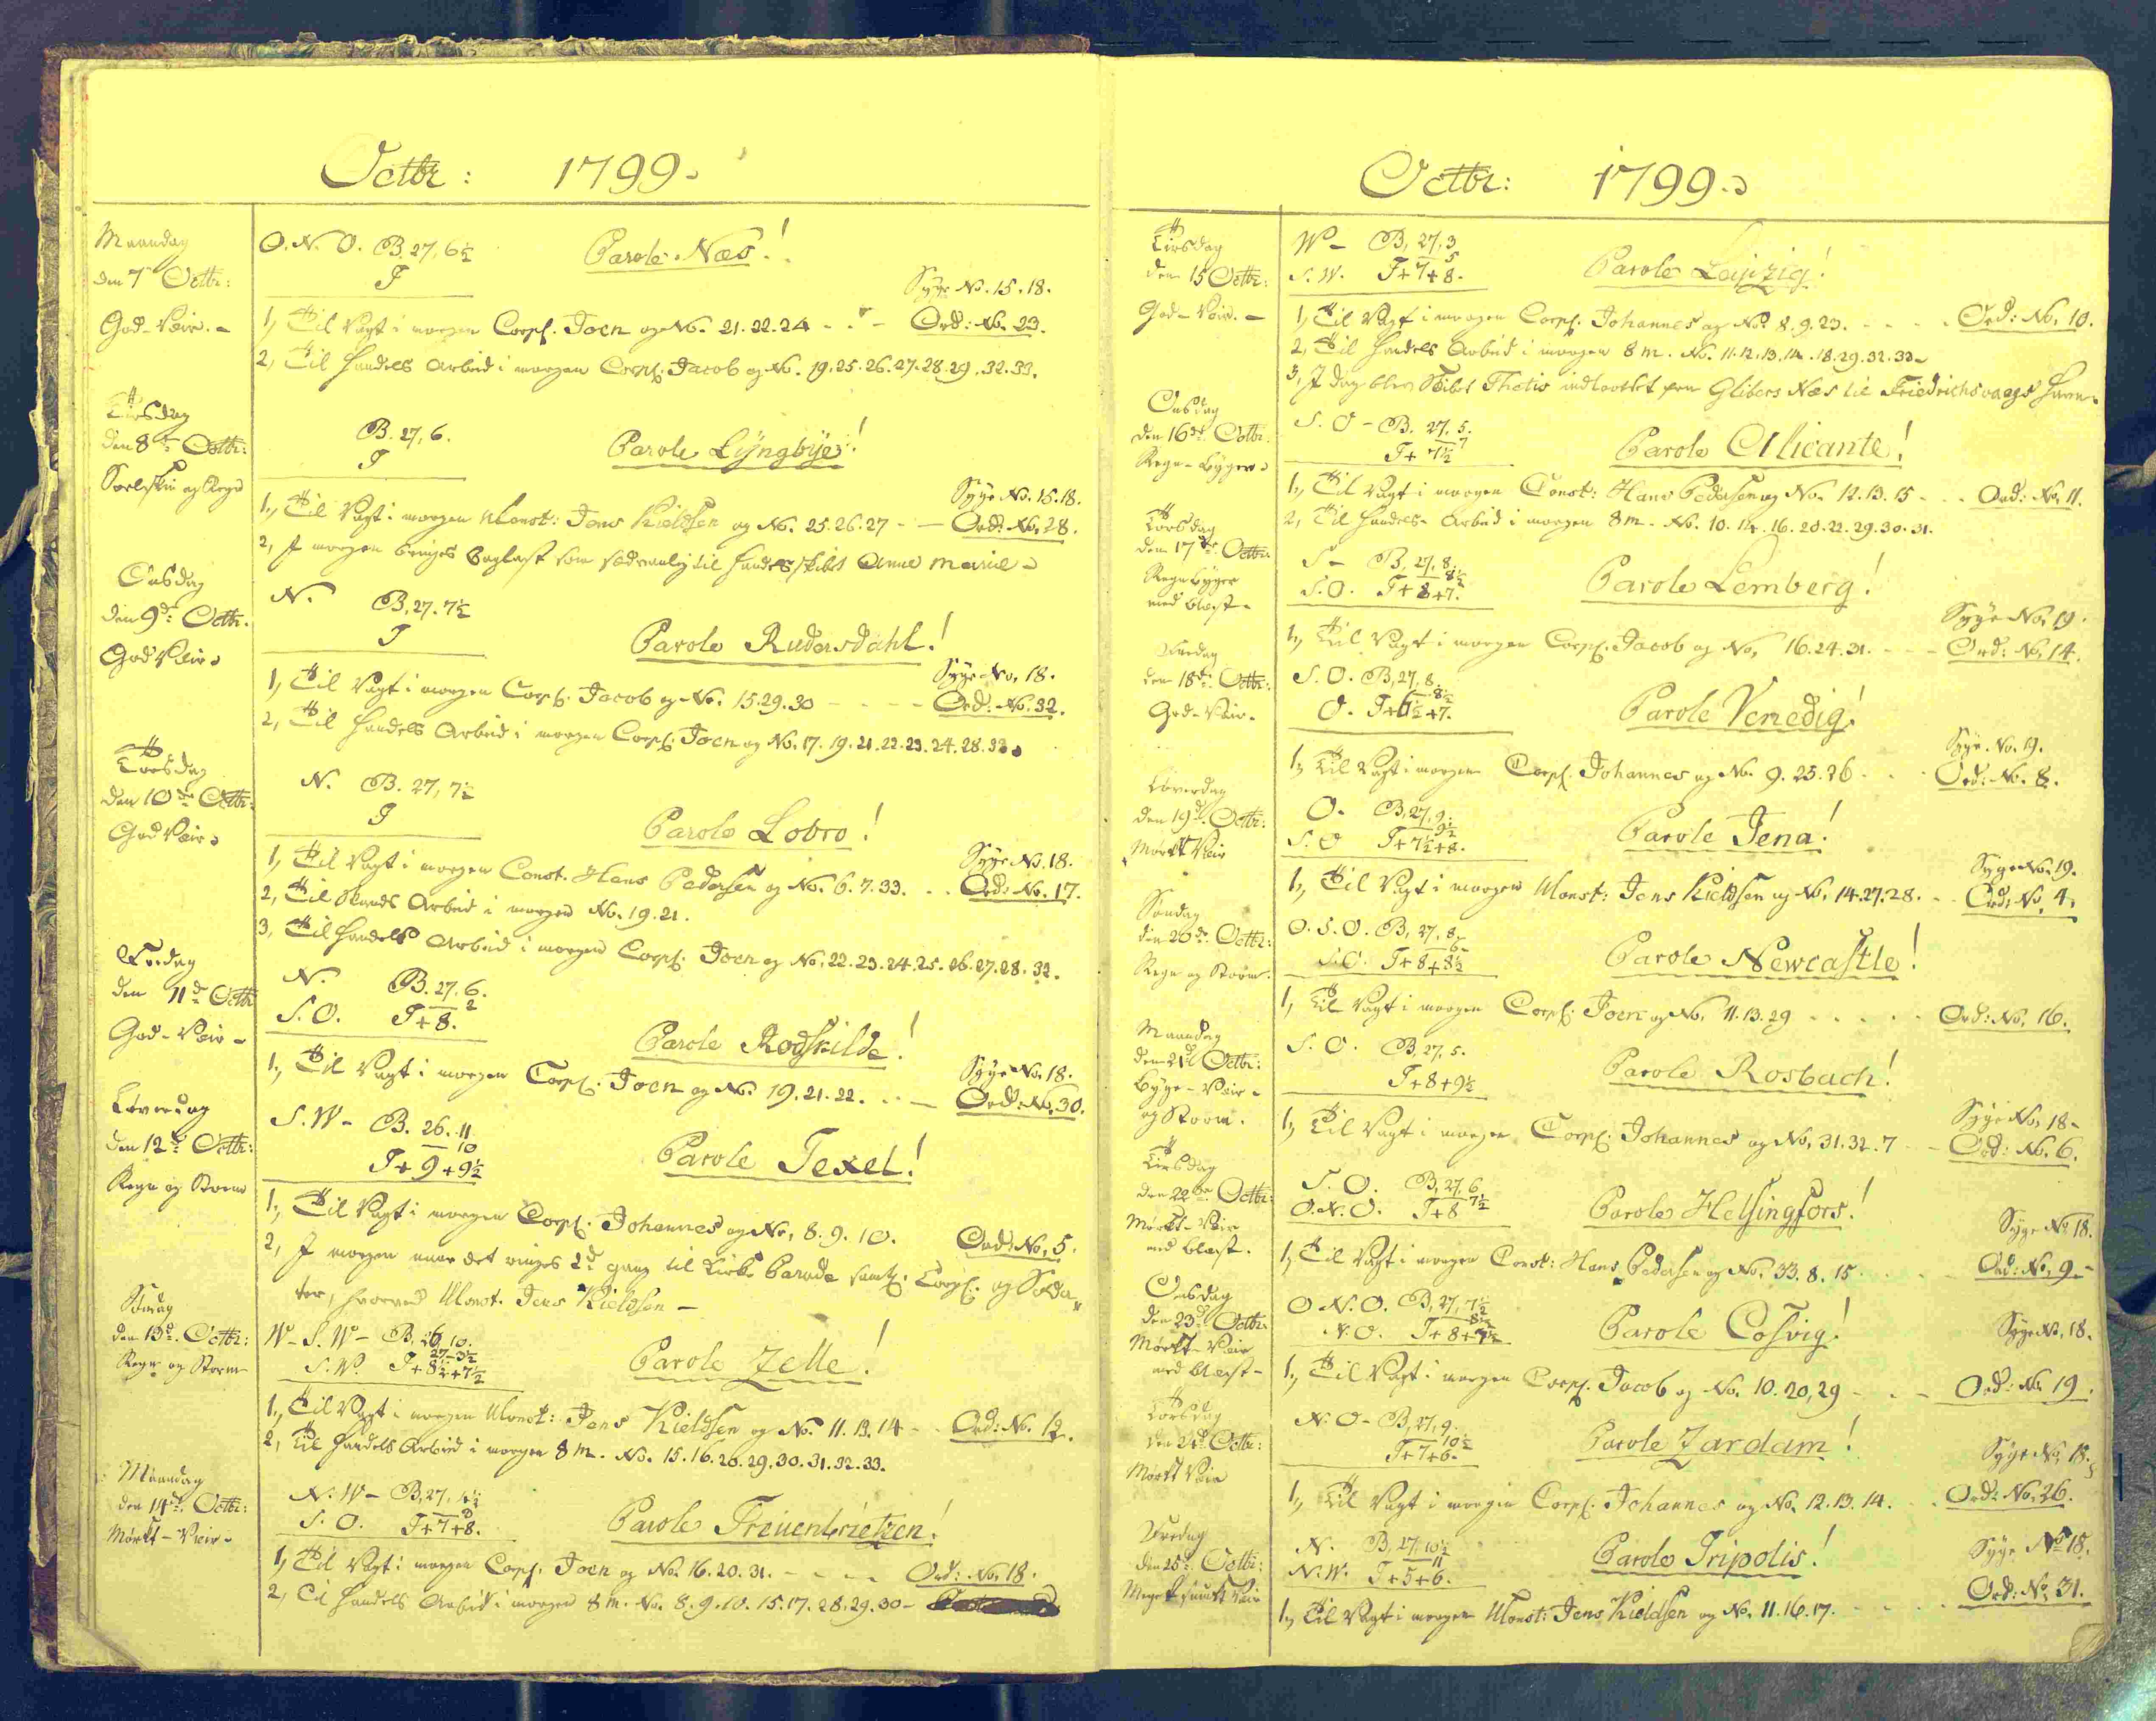 Octbr: 1799.
Maandag
den 7de Octbr:
God-Veir.-
O.N.O. B. 27, 6½
T
Parole Næs!
Syge No. 15.18.
1, Til Vagt i morgen Corpl. Joen og No. 21.22.24 - - - Ord: No. 23.
2, Til Handels Arbeid i morgen Corpl: Jacob og No. 19.25.26.27.28.29.32.33.
Tirsdag
den 8de Octbr:
Soelskin og Regn
B. 27, 6.
T
Parole Lyngbye!
Syge No. 15.18.
1, Til Vagt i morgen Const: Jens Kieldsen og No. 25.26.27 - - Ord: No. 28.
2, I morgen bringes Baglast som sædvanlig til Handels skibet Anne Marie
Onsdag
den 9de Octbr.
God Veir
N. B. 27. 7½
T
Parole Rudersdahl!
Syge No. 18.
1, Til Vagt i morgen Corpl. Jacob og No. 15.29.30 - - - - Ord: No. 32.
2, Til Handels Arbeid i morgen Corpl: Joen og No. 17.19.21.22.23.24.28.33.
Torsdag
den 10de Octbr:
God Veir
N. B. 27, 7½
T
Parole Lobro!
Syge No. 18.
1, Til Vagt i morgen Const. Hans Pedersen og No. 6.7.33. - - Ord: No. 17.
2, Til Skands Arbeid i morgen No. 19.21.
3, Til Handels Arbeid i morgen Corpl: Joen og No. 22.23.24.25.26.27.28.32.
Fredag
den 11de Octbr
God-Veir-
N. B. 27. 6.
2
S.O. T+8.
Parole Rodskilde!
Syge No. 18.
1, Til Vagt i morgen Corpl. Joen og No. 19.21.22. - - - Ord: No. 30.
Løverdag
den 12te Octbr:
Regn og Storm
S.W- B. 26. 11
10
T+9+9½
Parole Texel!
1, Til Vagt i morgen Corpl. Johannes og No. 8.9.10. Ord: No. 5.
2, I morgen naar det ringes 2d gang til Kirke Parade samtl: Corpl: og Solda-
ter, hvorved Const. Jens Kieldsen -
Søndag
den 13de Octbr:
Regn og Storm
W-S.W- B. 26, 10.
27-3½
S.W. T+8½+7½
Parole Zelle!
1, Til Vagt i morgen Const: Jens Kieldsen og No. 11.13.14 - - Ord: No. 12.
2, Til Handels Arbeid i morgen 8 m. No. 15.16.20.29.30.31.32.33.
Maandag
den 14de Octbr:
Mørkt-Veir-
N.W- B, 27, 4½
S.O. T+7+8.
Parole Treuenbrietzen!
1, Til Vagt i morgen Corpl. Joen og No. 16.20.31. - - - Ord: No. 18.
2, Til Handels Arbeid i morgen 8 m. No. 8.9.10.15.17.28.29.30-
Octbr: 1799.
Tirsdag
den 15 Octbr:
God-Veir.-
W- B, 27, 3
5
S.W. T+7+8.
Parole Leipzig!
1, Til Vagt i morgen Corpl. Johannes og No. 8.9.23. - - - - Ord: No. 10.
2, Til Handels Arbeid i morgen 8 m. No. 11.12.13.14.18.29.32.33-
3, I dag blev Skibet Thetis indlootset fra Glibers Næs til Friedrichsvaags Havn.
Onsdag
den 16de Octbr.
Regn-Byger
S.O- B. 27, 5.
7
T+7½
Parole Alicante!
1, Til Vagt i morgen Const: Hans Pedersen og No. 12.13.15 - - - Ord: No. 11.
2, Til Handels-Arbeid i morgen 8 m. No. 10.14.16.20.22.29.30.31.
Torsdag
den 17de Octbr:
Regn Byger
med Blæst-
S- B, 27, 8.
8½
S.O. T+8+7.
Parole Lemberg!
Syge No. 19.
1, Til Vagt i morgen Corpl. Jacob og No. 16.24.31. - - - Ord: No. 14.
Fredag
den 18de Octbr:
God-Veir.
S.O. B, 27, 8.
8½
O. T+6½+7.
Parole Venedig!
Syge No. 19.
1, Til Vagt i morgen Corpl. Johannes og No. 9.25.26 - - - Ord: No. 8.
Løverdag
den 19de Octbr:
Mørkt Veir
O. B, 27, 9.
9½
S.O T+7½+8.
Parole Jena!
Syge No. 19.
1, Til Vagt i morgen Const: Jens Kieldsen og No. 14.27.28. - - Ord: No. 4.
Søndag
den 20de Octbr:
Regn og Storm.
O.S.O. B, 27, 8.
6-
S.O. T+8+8½
Parole Newcastle!
1, Til Vagt i morgen Corpl: Joen og No. 11.13.29 - - - - Ord: No. 16.
Maandag
den 21de Octbr:
Byge-Veir-
og Storm.
S.O. B, 27, 5.
T+8+9½
Parole Rosbach!
Syge No. 18-
1, Til Vagt i morgen Corpl: Johannes og No. 31.32.7 - - Ord: No. 6.
Tirsdag
den 22de Octbr:
Mørkt-Veir
med Blæst.
S.O. B, 27, 6
7½
O.N.O. T+8
Parole Helsingfors!
Syge No 18.
1, Til Vagt i morgen Const: Hans Pedersen og No. 33.8.15. - - - Ord: No. 9.-
Onsdag
den 23de Octbr.
Mørkt-Veir
med Blæst-
O.N.O. B, 27, 7½
8½
N.O. T+8+7½
Parole Coswig!
Syge No. 18.
1, Til Vagt i morgen Corpl. Jacob og No. 10.20,29 - - - Ord: No. 19.
Torsdag
den 24de Octbr:
Mørkt Veir
N.O- B, 27, 9.
10½
T+7+6.
Parole Zardam!
Syge No. 18.
1, Til Vagt i morgen Corpl: Johannes og No. 12.13.14. - - Ord: No. 26.
Fredag
den 25de Octbr:
Meget smukt Veir
N. B, 27, 10½
11
N.W. T+5+6.
Parole Tripolis!
Syge No 18.
1, Til Vagt i morgen Const: Jens Kieldsen og No. 11.16.17. - - - - Ord: No. 31.